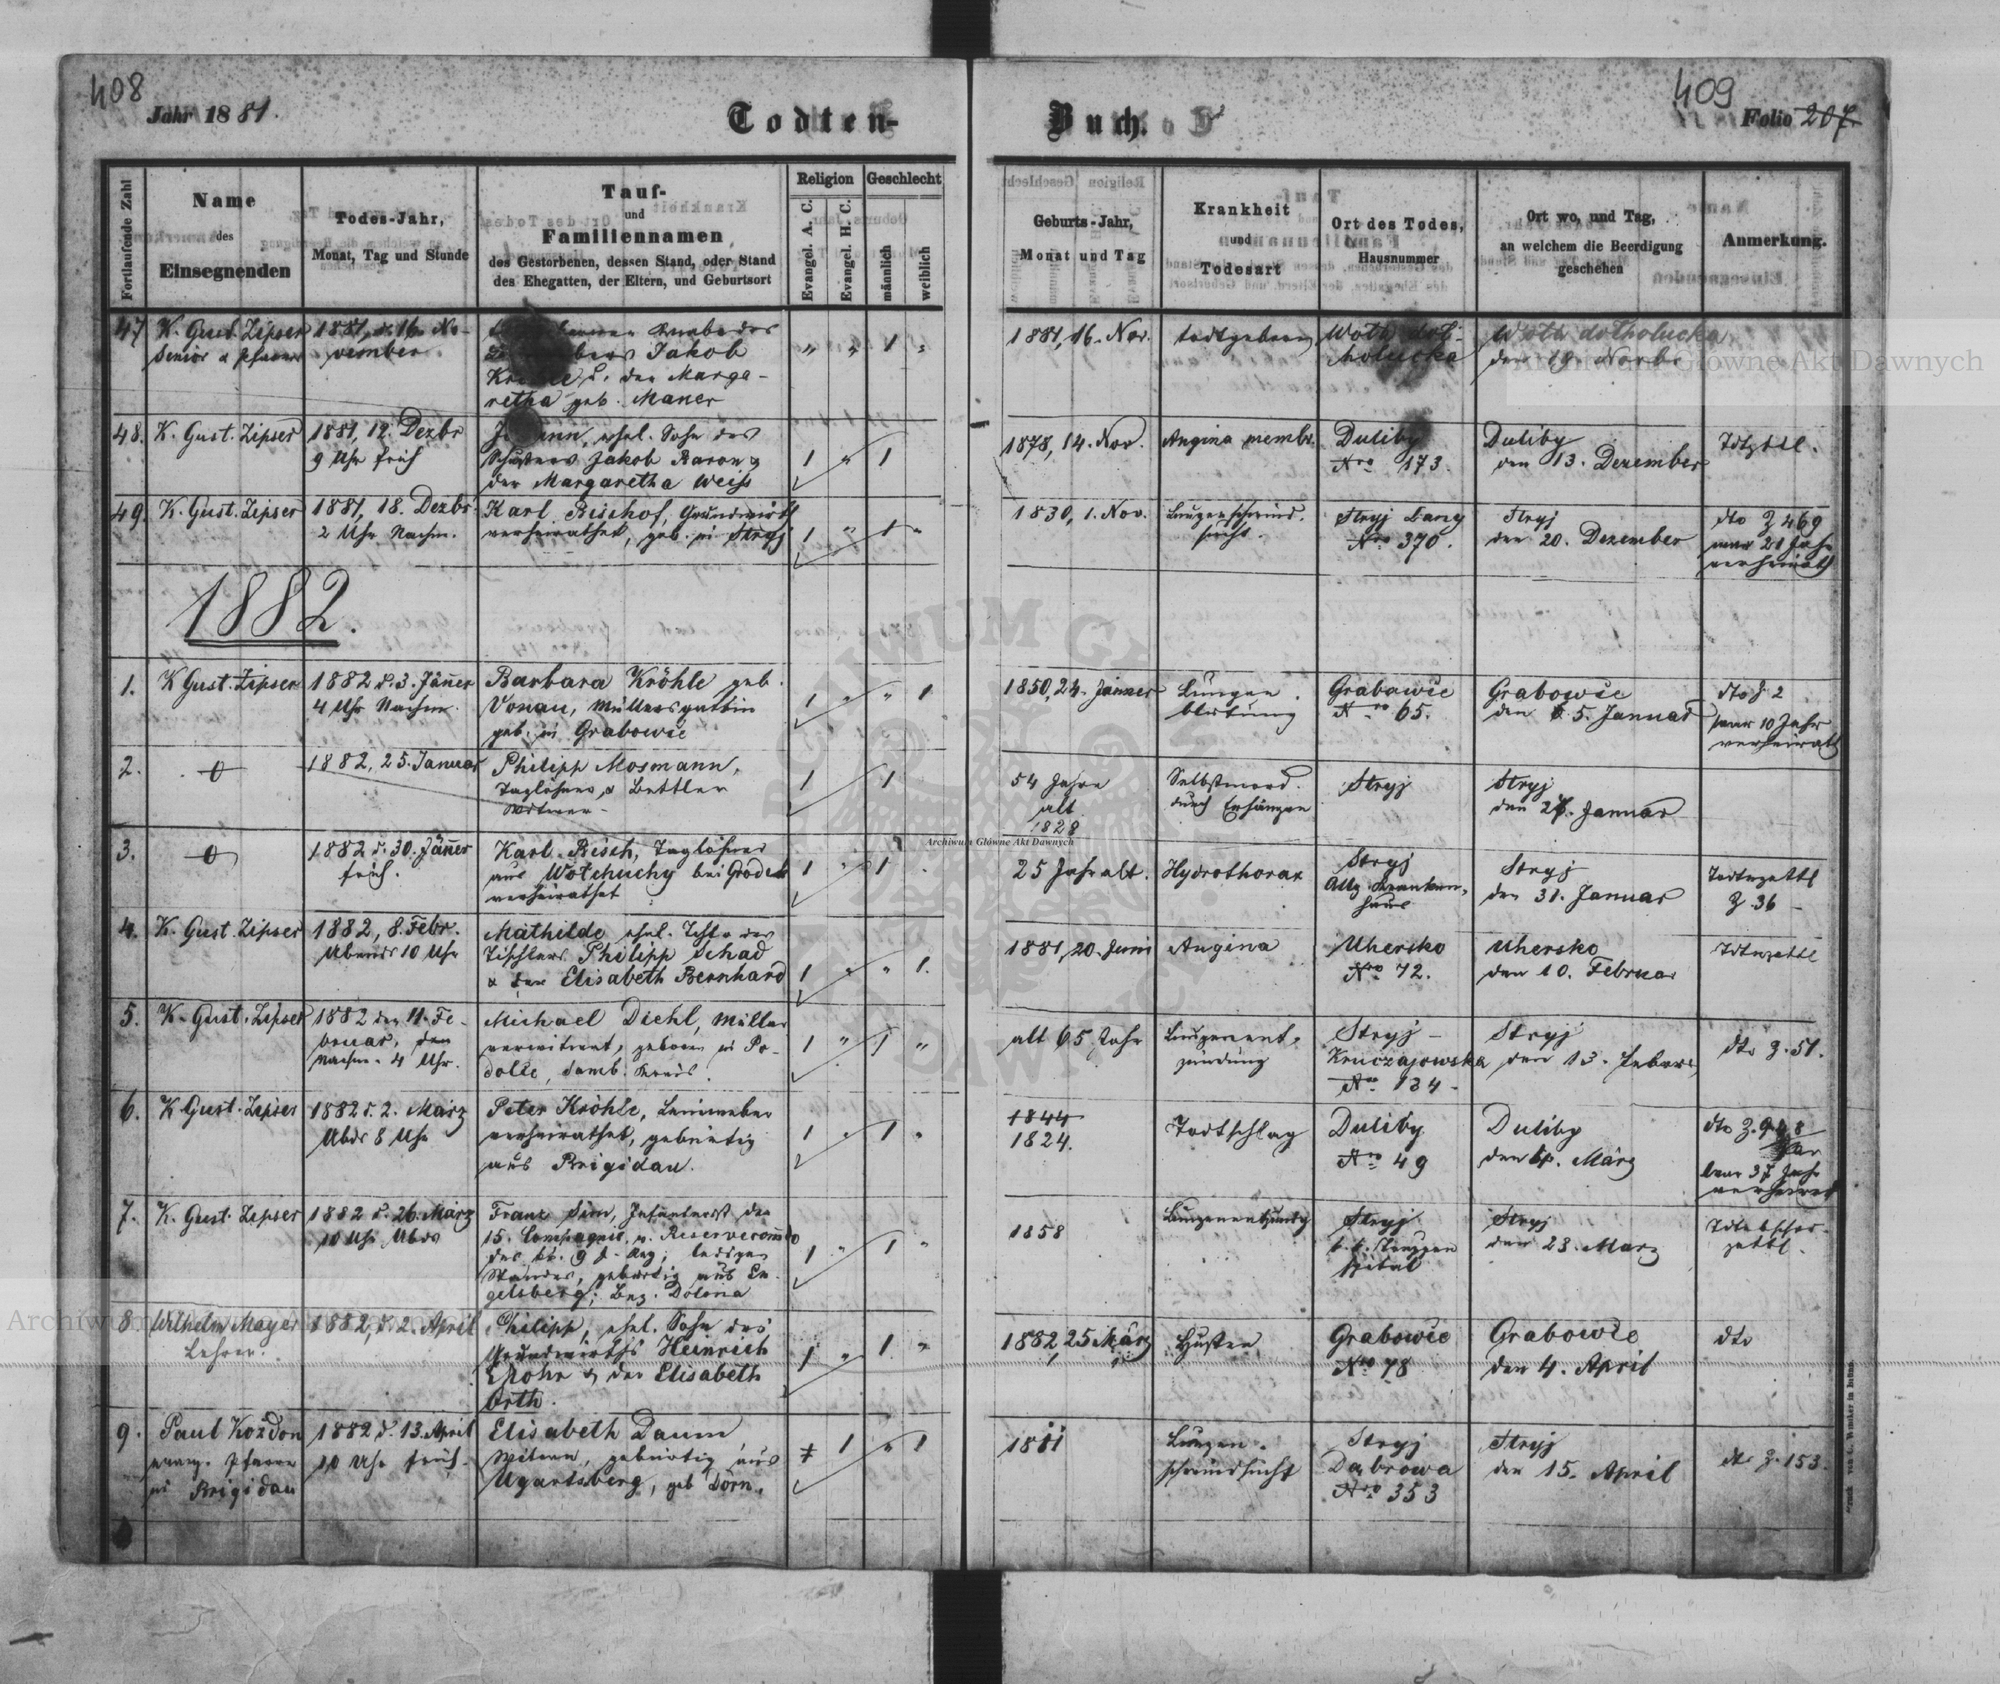 408
Jahr 1881.
Todten-
Buch.
409
Folio 207
Fortlaufende Zahl
Name
des
Einsegnenden
Todes-Jahr,
Monat, Tag und Stunde
Tauf-
und
Familiennamen
des Gestorbenen, dessen Stand, oder Stand
des Ehegatten, der Eltern, und Geburtsort
Religion
Evangel. A. C.
Evangel. H. C.
Geschlecht
männlich
weiblich
Geburts-Jahr,
Monat und Tag
Krankheit
und
Todesart
Ort des Todes,
Hausnummer
Ort wo, und Tag,
an welchem die Beerdigung
geschehen
Anmerkung.
47
K. Gust. Zipser
Senior & Pfarrer
1881, d. 16. No-
vember
Knabe des
Jakob
u. der Marga-
retha geb. Maner
" " 1 "
1881, 16. Nov.
todtgeboren
Wola dol-
holucka
Wola dolholucka
den 19. Novbr
48.
K. Gust. Zipser
1881, 12. Dezbr
9 Uhr früh
Johann, ehel. Sohn des
Schusters Jakob Baron &
der Margaretha Weiss
1 " 1
1878, 14. Nov.
Angina membr.
Duliby
Nro 173.
Duliby
den 13. Dezember
Tdtzttl.
49.
K. Gust. Zipser
1881, 18. Dezbr
2 Uhr Nachm.
Karl Bischof, Grundwirth
verheirathet, geb. in Stryj
1 " 1 "
1830, 1. Nov.
Lungenschwind-
sucht.
Stryj Lany
Nro 370.
Stryj
den 20. Dezember
dto Z 469
war 21 Jahr
verheirath
1882.
1.
K Gust. Zipser
1882 d. 3. Jänner
4 Uhr Nachm.
Barbara Kröhle geb.
Vonau, Müllersgattin
geb. in Grabowie
1 " " 1
1850, 24. Jänner
Lungen-
blutung
Grabowie
Nro 65.
Grabowie
den 5. Januar
dto Z 2
war 10 Jahr
verheirath
2.
1882, 25. Januar
Philipp Mosmann,
Taglöhner, & Bettler
Witwer -
1 1
54 Jahre
alt
1828
Selbstmord
durch Erhängen
Stryj
Stryj
den 27. Januar
3.
1882 d. 30. Jänner
früh.
Karl Bisch, Taglöhner
aus Wolchuchy bei Grodek
verheirathet
1 " 1 .
25 Jahr alt.
Hydrothorax
Stryj
Allg Kranken-
haus
Stryj
den 31. Januar
Todtenzettl
Z 36
4.
K. Gust. Zipser
1882, 8. Febr.
Abends 10 Uhr
Mathilde ehel. Tcht. des
Tischlers Philipp Schad
& der Elisabeth Bernhard
1 " " 1.
1881, 20. Juni
Angina
Uhersko
Nro 72.
Uhersko
den 10. Februar
Tdtnzettl
5.
K. Gust. Zipser
1882 den 11. Fe-
bruar, den
Nachm. 4 Uhr.
Michael Diehl, Müller
verwitwet, geboren in Po-
dolce, Samb. Kreis.
1 " 1 "
alt 65 Jahr
Lungenent-
zündung
Stryj -
Kruczajowska
Nro 134 -
Stryj
den 13. Febuar
dto Z. 51.
6.
K Gust. Zipser
1882 d. 2. März
Abds 8 Uhr
Peter Kröhle, Leinweber
verheirathet, gebürtig
aus Brigidau.
1 " 1 "
1844
1824.
Todtschlag
Duliby
Nro 49
Duliby
den 4. März
dto Z.
war 37 Jahr
verheirat
7.
K. Gust. Zipser
1882 d. 26. März
10 Uhr Abds
Franz Sinn, Infanterist der
15. Compagnie, u. Reservecomdo
des kk. 9 J. Reg, ledigen
Standes, gebürtig aus En-
gelsberg; Bez. Dolona
1 " 1 "
1858
Lungenentzündg
Stryj
k. k. Truppen
spital
Stryj
den 28. März
8
Wilhelm Mayer
Lehrer.
1882, d. 2. April
Philipp, ehel. Sohn des
Grundwirths Heinrich
Rohr & der Elisabeth
Orth.
1 " 1 "
1882, 25 März
Husten
Grabowie
Nro 78
Grabowie
den 4. April
dto
9.
Paul Kozdon
evang. Pfarrer
in Brigidau
1882 d. 13. April
10 Uhr früh.
Elisabeth Daum
Witwe, gebürtig aus
Ugartsberg, geb Dörn.
1 " 1
1811
Lungen-
schwindsucht
Stryj
Dabrowa
Nro 353
Stryj
den 15. April
dto Z. 153.
Archiwum Główne Akt Dawnych
Archiwum Główne Akt Dawnych
Archiwum Główne Akt Dawnych